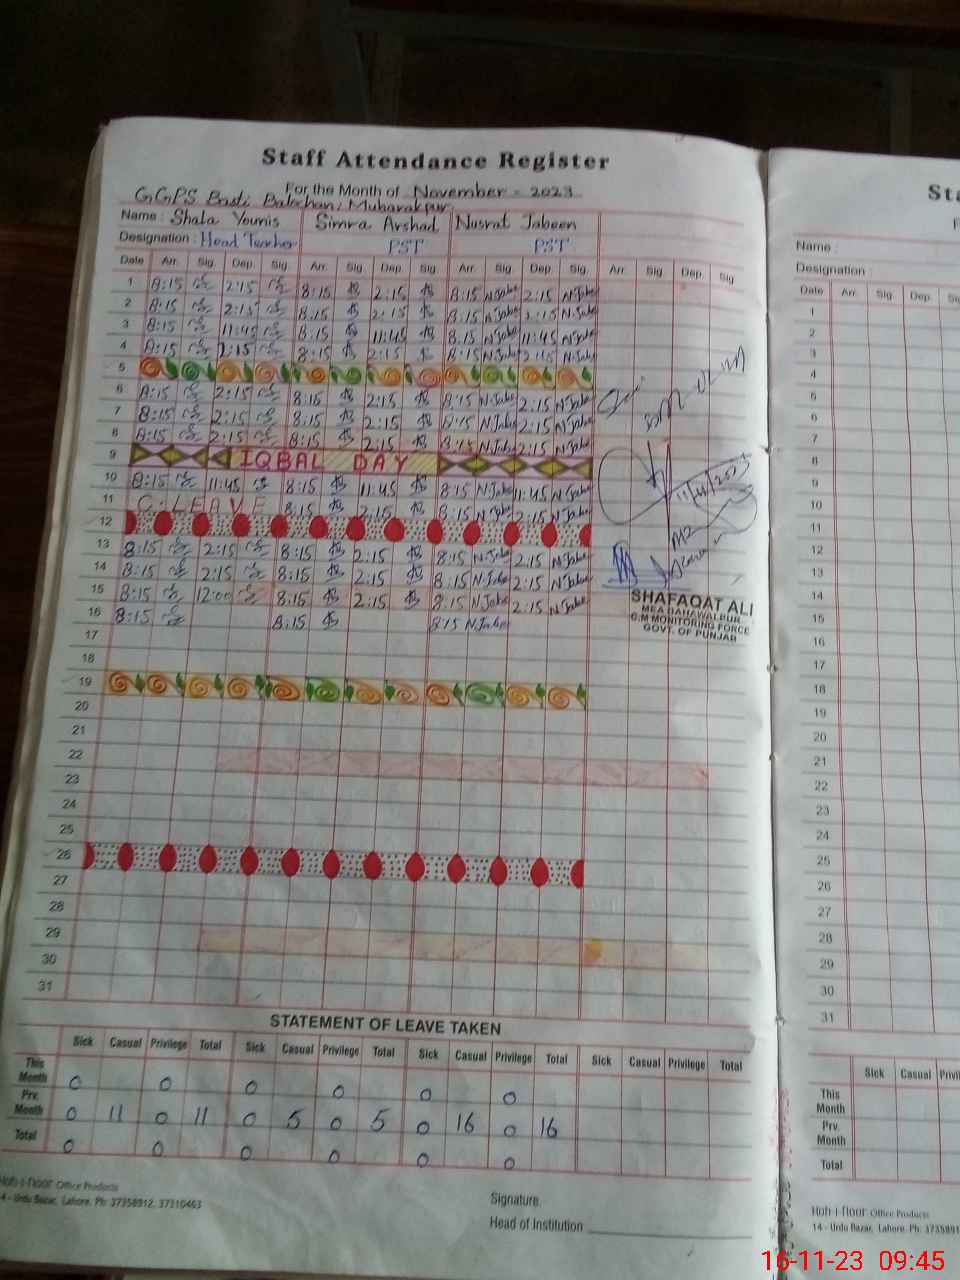 Staff Attendance Register
For the Month of November - 2023
GGPS Basti Mubarakpur.
Name : Shala Younis Simra Arshad Nusrat Jabeen
Designation : Head Teacher PST PST
Date Arr. Sig. Dep. Sig. Arr. Sig. Dep. Sig. Arr. Sig. Dep. Sig. Arr. Sig. Dep. Sig
1 8:15 2:15 8:15 2:15 8:15 N.Jabe 2:15 N.Jabe
2 8:15 2:15 8:15 2:15 8:15 N.Jabe 2:15 N.Jabe
3 8:15 11:45 8:15 11:45 8.15 N.Jabe 11:45 N.Jabe
4 8:15 2:15 8:15 2:15 8:15 N.Jabe 2:15 N.Jabe
5
6 8:15 2:15 8:15 2:15 8:15 N.Jabe 2:15 N.Jabe
7 8:15 2:15 8:15 2:15 8:15 N.Jabe 2:15 N.Jabe
8 8:15 2:15 8:15 2:15 8:15 N.Jabe 2:15 N.Jabe
9 IQBAL DAY
10 8:15 11:45 8:15 11:45 8:15 N.Jabe 11:45 N.Jabe
11 C.LEAVE 8:15 2:15 8:15 N.Jabe 2:15 N.Jabe
12
13 8:15 2:15 8:15 2:15 8:15 N.Jabe 2:15 N.Jabe
14 8:15 2:15 8:15 2:15 8:15 N.Jabe 2:15 N.Jabe
15 8:15 12:00 8:15 2:15 8:15 N.Jabe 2:15 N.Jabe
16 8:15 8:15 8:15 N.Jabe
17
18
19
20
21
22
23
24
25
26
27
28
29
30
31
SHAFAQAT ALI
MEA BAHAWALPUR
C.M MONITORING FORCE
GOVT. OF PUNJAB
STATEMENT OF LEAVE TAKEN
Sick Casual Privilege Total Sick Casual Privilege Total Sick Casual Privilege Total Sick Casual Privilege Total
This Month 0 0 0 0 0 0
Prv. Month 0 11 0 11 0 5 0 5 0 16 0 16
Total 0 0 0 0 0 0
Office Products
14 - Urdu Bazar, Lahore. Ph: 37358912, 37310463
Signature.
Head of Institution
Name :
Designation :
Date Arr. Sig. Dep.
1
2
3
4
5
6
7
8
9
10
11
12
13
14
15
16
17
18
19
20
21
22
23
24
25
26
27
28
29
30
31
Sick Casual
This Month
Prv. Month
Total
Office Products
14 - Urdu Bazar, Lahore. Ph:
16-11-23 09:45